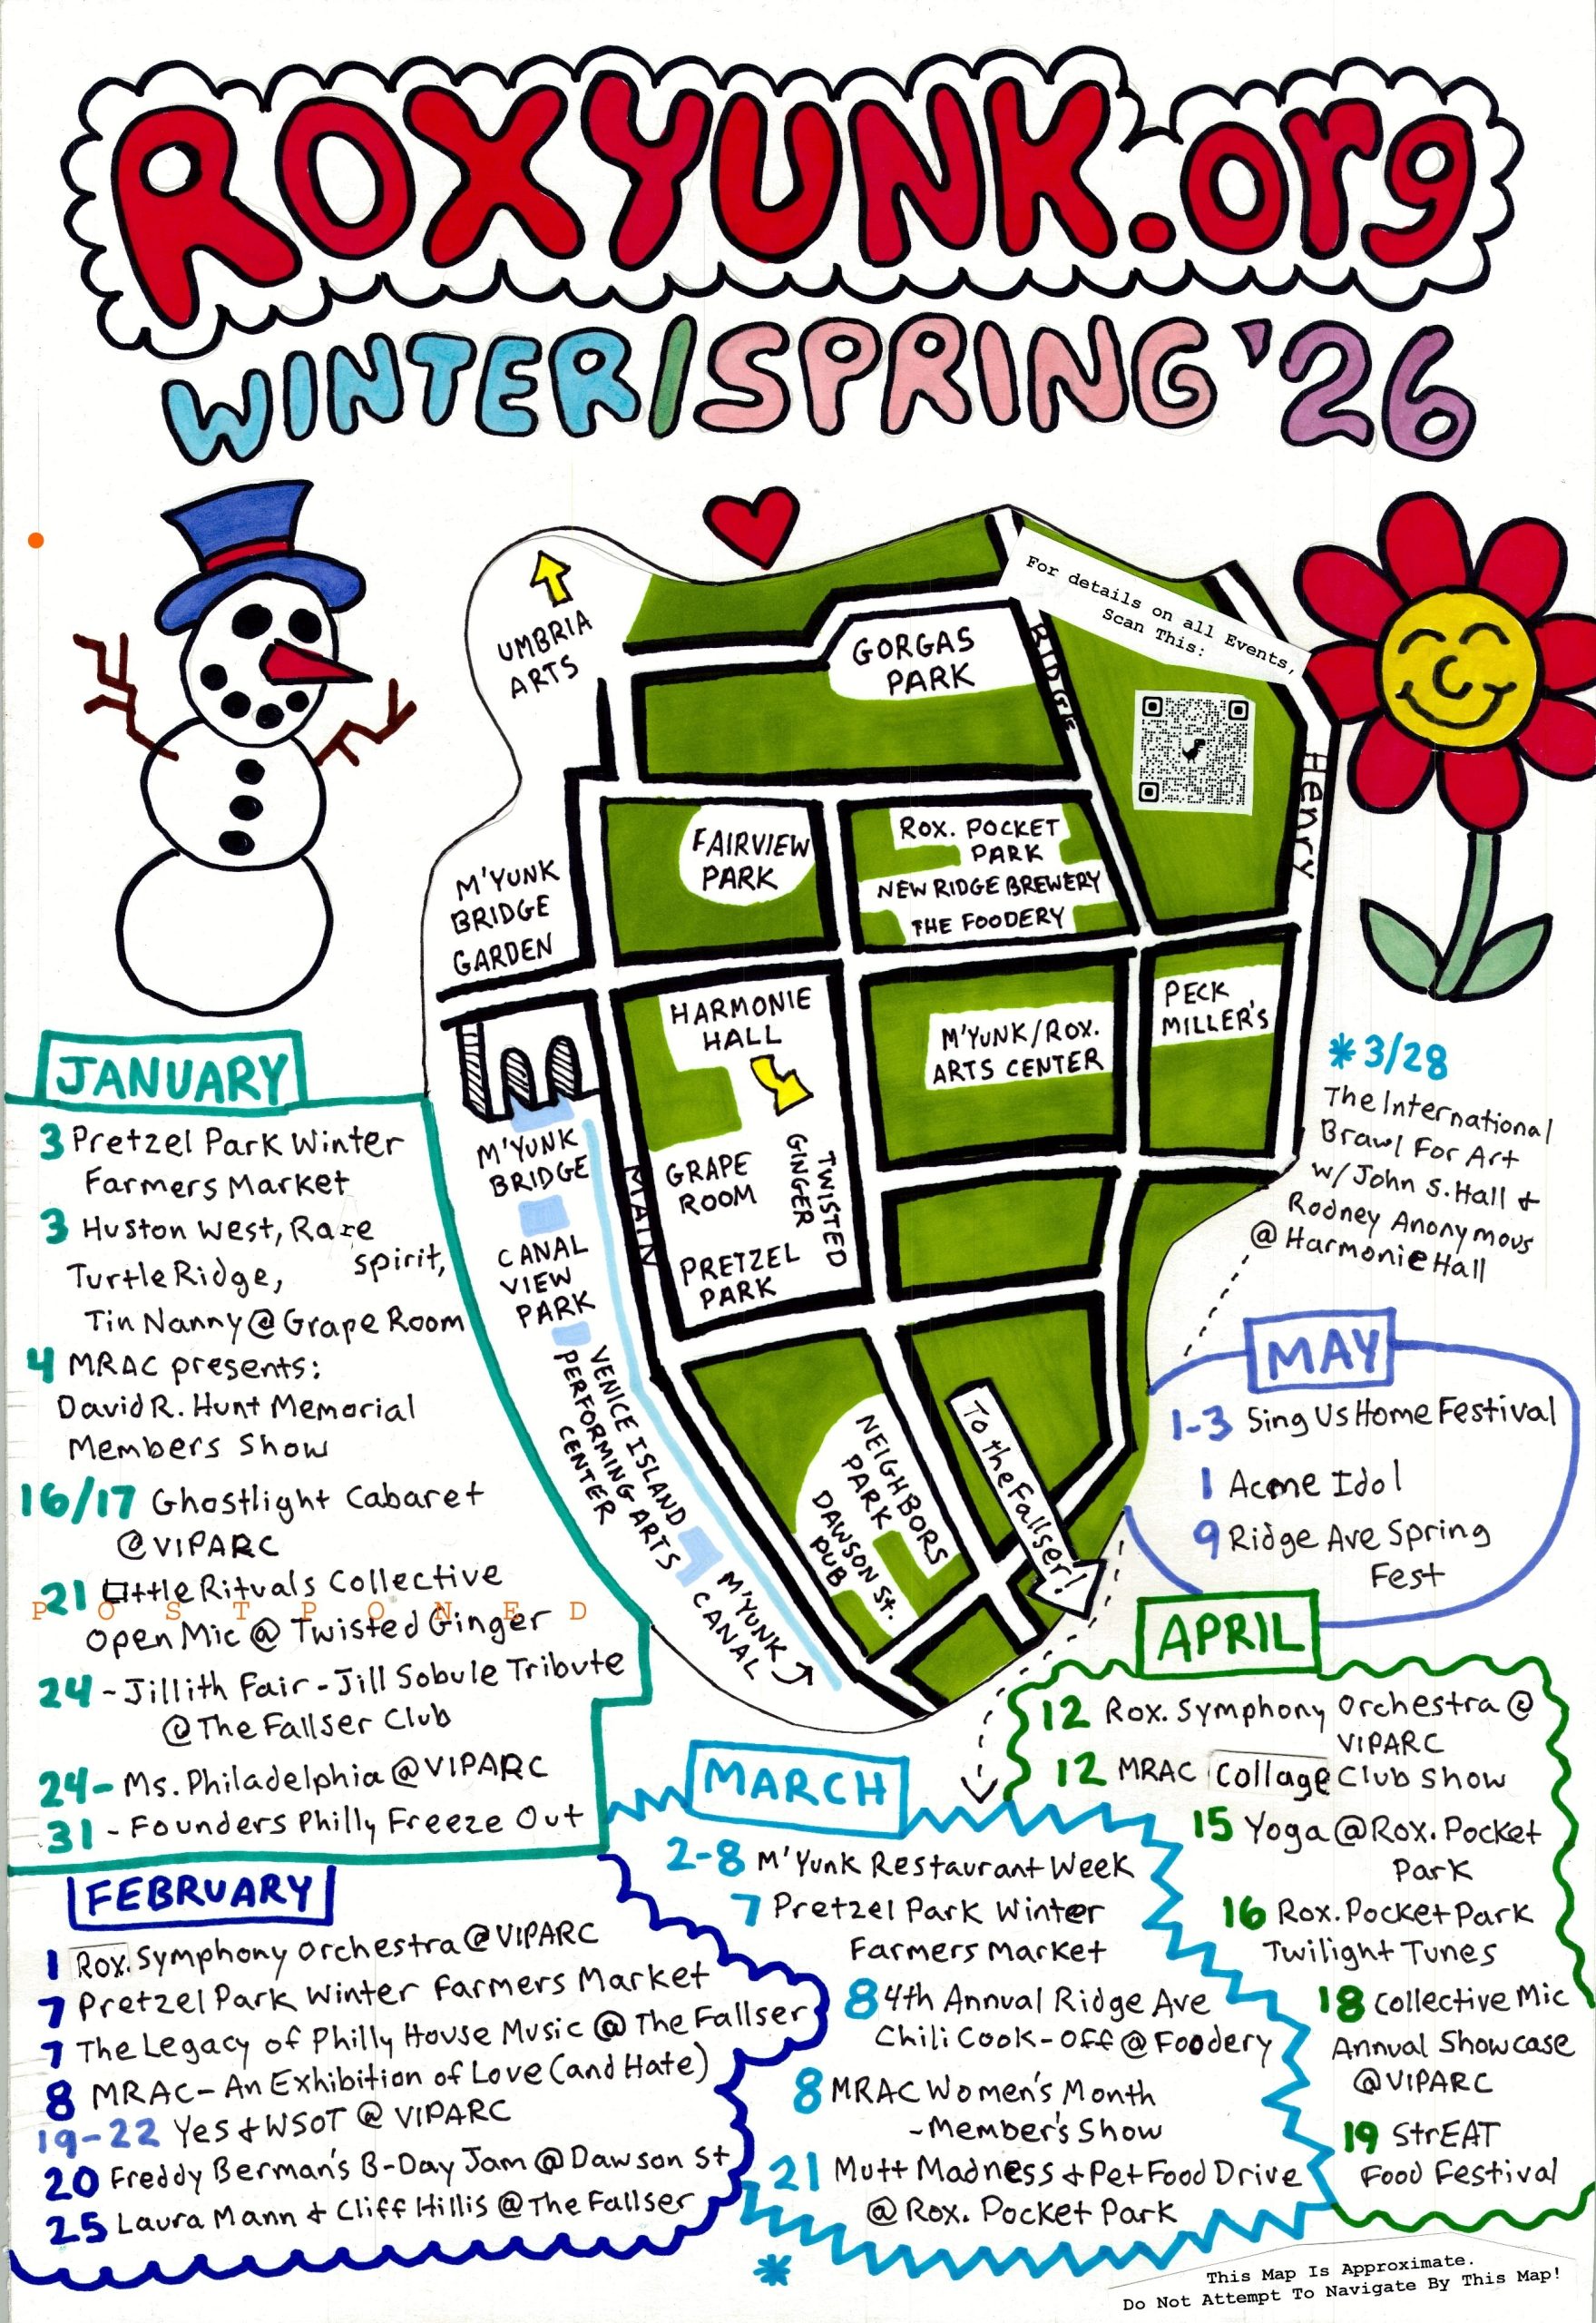 ROXYUNK.org
WINTER/SPRING '26
For details on all Events,
Scan This:
UMBRIA
ARTS
GORGAS
PARK
RIDGE
Henry
FAIRVIEW
PARK
ROX. POCKET
PARK
NEW RIDGE BREWERY
THE FOODERY
M'YUNK
BRIDGE
GARDEN
HARMONIE
HALL
M'YUNK/ROX.
ARTS CENTER
PECK
MILLER'S
M'YUNK
BRIDGE
MAIN
GRAPE
ROOM
TWISTED
GINGER
CANAL
VIEW
PARK
PRETZEL
PARK
VENICE ISLAND
PERFORMING ARTS
CENTER
NEIGHBORS
PARK
DAWSON St.
PUB
To the Fallser!
M'YUNK
CANAL
JANUARY
3 Pretzel Park Winter
Farmers Market
3 Huston West, Rare
spirit,
Turtle Ridge,
Tin Nanny @ Grape Room
4 MRAC presents:
David R. Hunt Memorial
Members Show
16/17 Ghostlight Cabaret
@ VIPARC
21 Little Rituals Collective
POSTPONED
Open Mic @ Twisted Ginger
24 - Jillith Fair - Jill Sobule Tribute
@ The Fallser Club
24 - Ms. Philadelphia @ VIPARC
31 - Founders Philly Freeze Out
FEBRUARY
1 Rox. Symphony Orchestra @ VIPARC
7 Pretzel Park Winter Farmers Market
7 The Legacy of Philly House Music @ The Fallser
8 MRAC - An Exhibition of Love (and Hate)
19-22 Yes + WSOT @ VIPARC
20 Freddy Berman's B-Day Jam @ Dawson St
25 Laura Mann + Cliff Hillis @ The Fallser
MARCH
2-8 M'Yunk Restaurant Week
7 Pretzel Park Winter
Farmers Market
8 4th Annual Ridge Ave
Chili Cook-Off @ Foodery
8 MRAC Women's Month
- Member's Show
21 Mutt Madness + Pet Food Drive
@ Rox. Pocket Park
*
* 3/28
The International
Brawl For Art
w/ John S. Hall +
Rodney Anonymous
@ Harmonie Hall
MAY
1-3 Sing Us Home Festival
1 Acme Idol
9 Ridge Ave Spring
Fest
APRIL
12 Rox. Symphony Orchestra @
VIPARC
12 MRAC Collage Club Show
15 Yoga @ Rox. Pocket
Park
16 Rox. Pocket Park
Twilight Tunes
18 Collective Mic
Annual Showcase
@ VIPARC
19 StrEAT
Food Festival
This Map Is Approximate.
Do Not Attempt To Navigate By This Map!